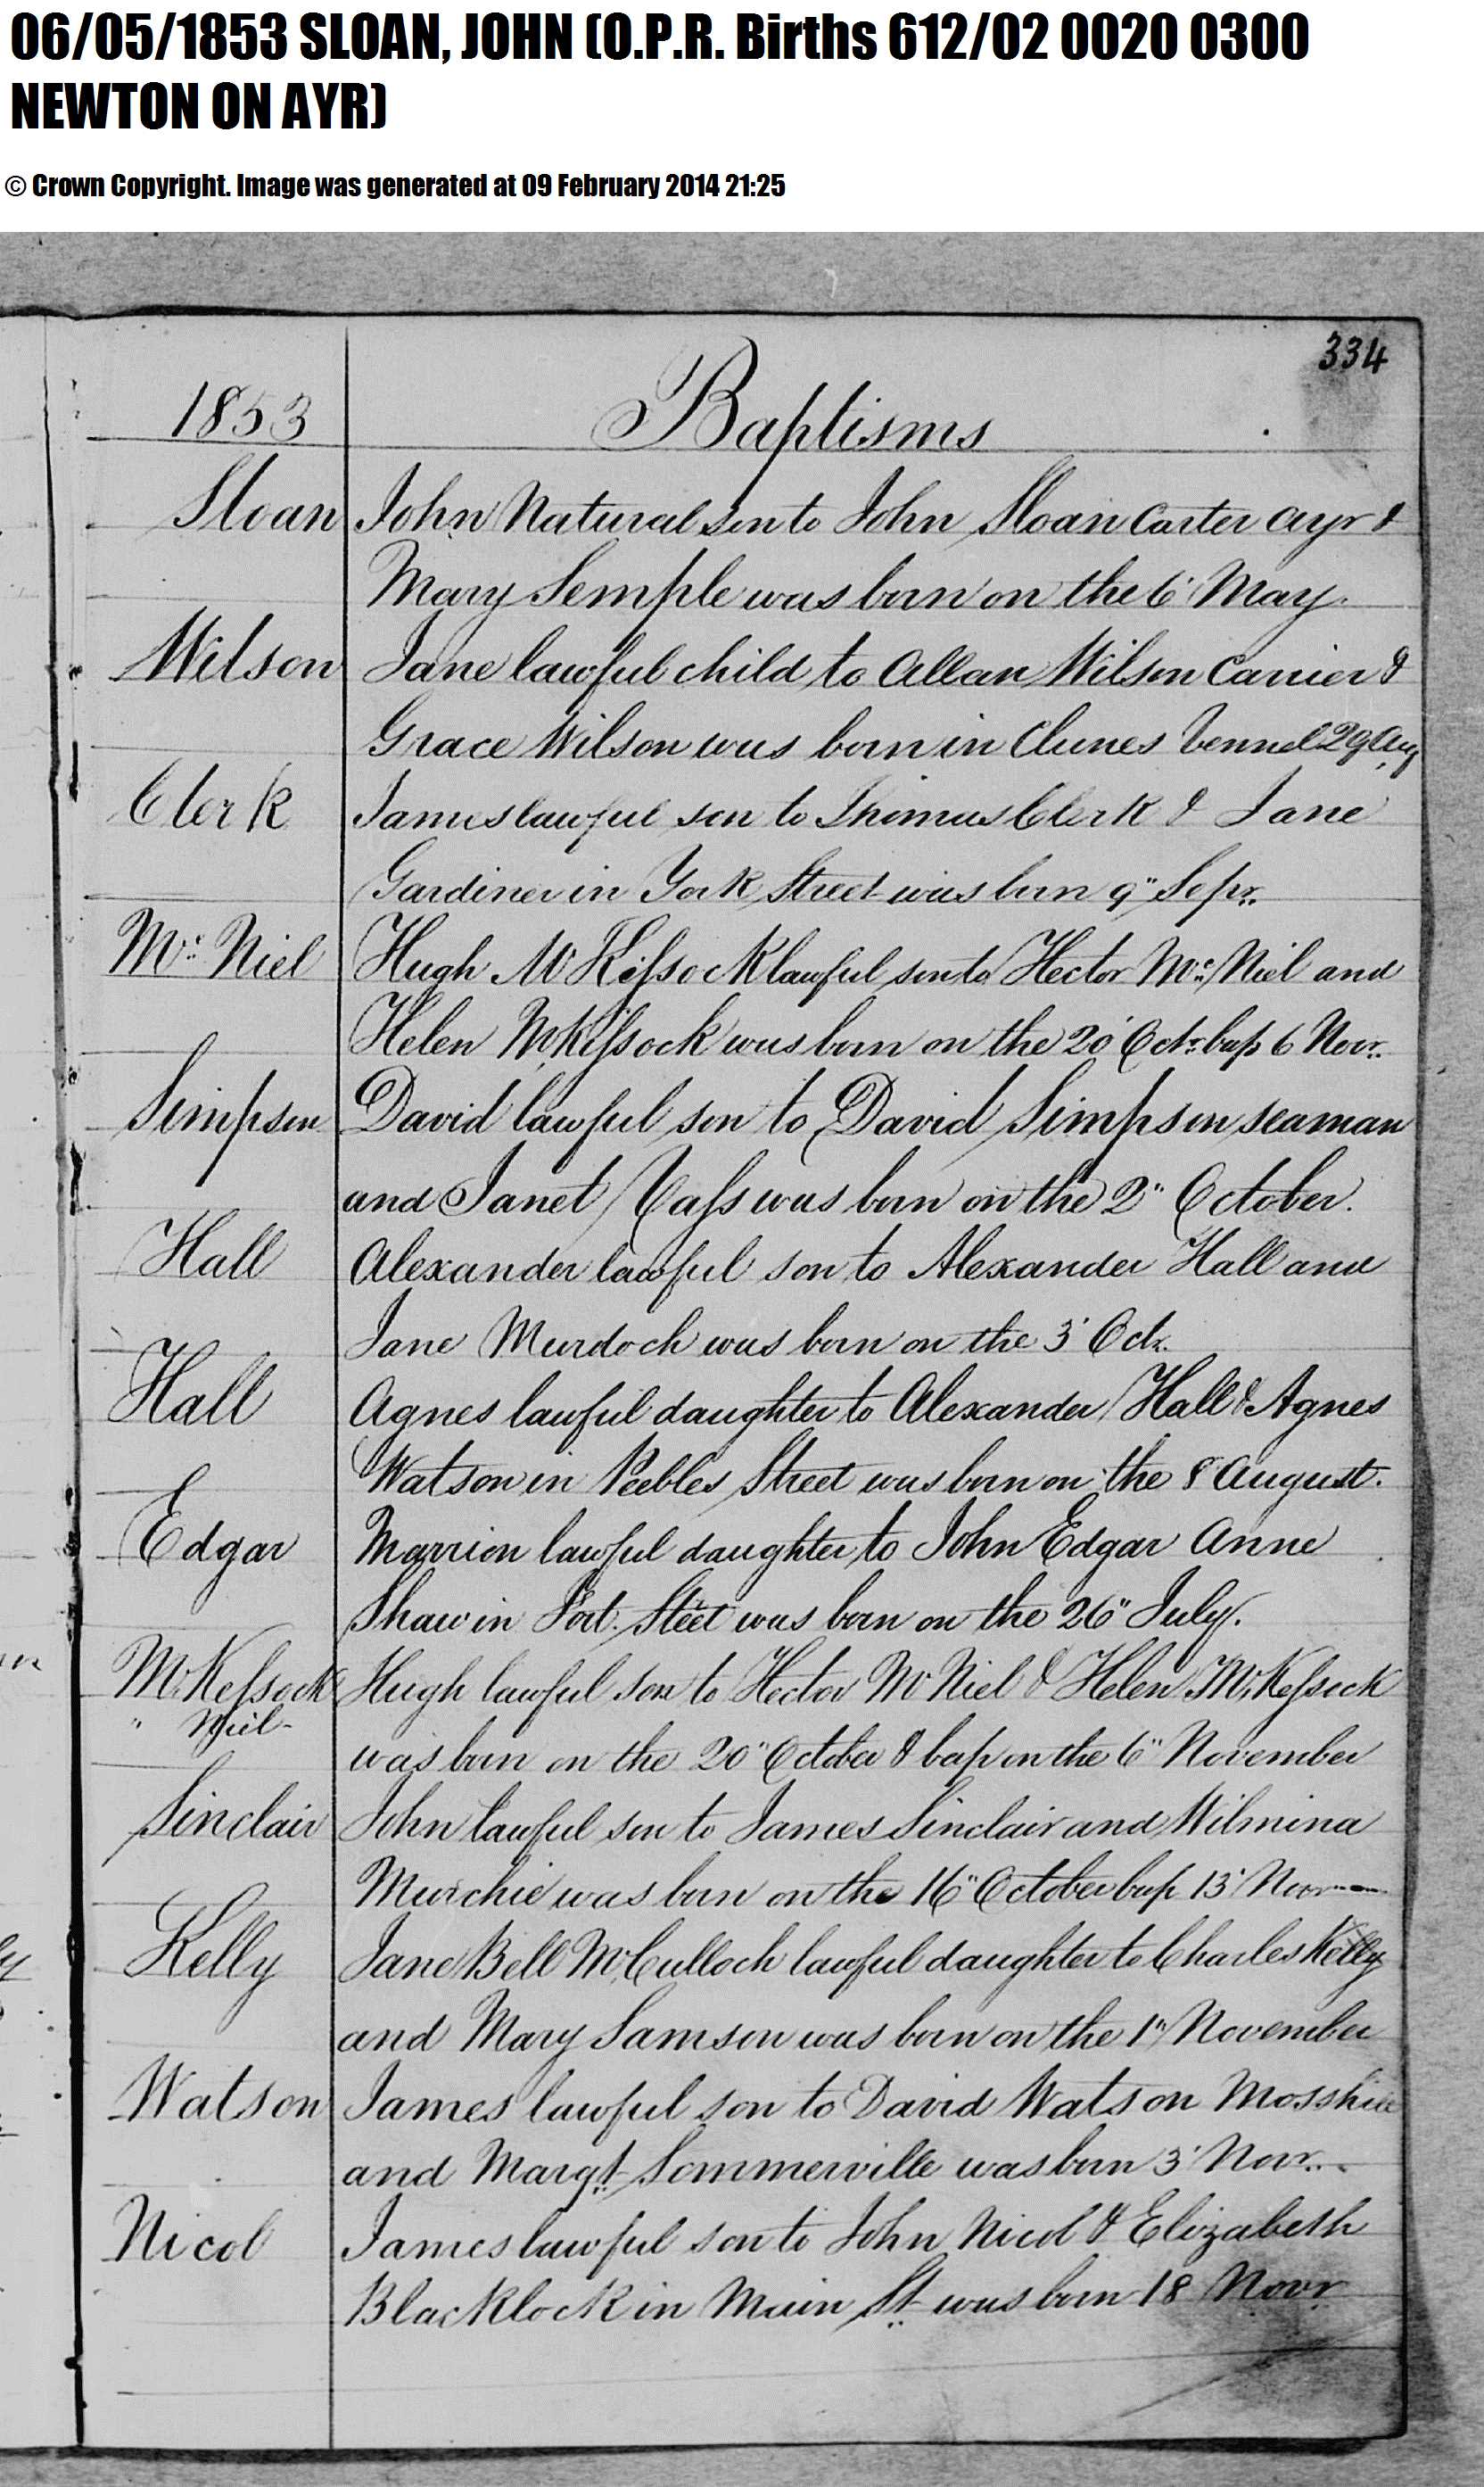 06/05/1853 SLOAN, JOHN (O.P.R. Births 612/02 0020 0300
NEWTON ON AYR)
© Crown Copyright. Image was generated at 09 February 2014 21:25
334
1853 Baptisms
Sloan John Natural Son to John Sloan Carter Ayr &
Mary Semple was born on the 6" May.
Wilson Jane lawful child to Allan Wilson Carrier &
Grace Wilson was born in Clunes Vennel 29 Aug
Clerk James lawful son to Thomas Clerk & Jane
Gardiner in York Street was born 9" Sepr.
Mc Niel Hugh McKissock lawful son to Hector Mc Niel and
Helen McKissock was born on the 20" Octr. bap 6 Novr.
Simpson David lawful son to David Simpson seaman
and Janet Vass was born on the 2" October.
Hall Alexander lawful son to Alexander Hall and
Jane Murdoch was born on the 3" Octr.
Hall Agnes lawful daughter to Alexander Hall & Agnes
Watson in Peebles Street was born on the 8" August.
Edgar Marrion lawful daughter to John Edgar Anne
Shaw in Port. Street was born on the 26" July.
McKessock Hugh lawful son to Hector McNiel & Helen McKessock
" Niel - was born on the 20" October & bap on the 6" November
Sinclair John lawful son to James Sinclair and Wilmina
Murchie was born on the 16" October bap 13" Novr
Kelly Jane Bell McCulloch lawful daughter to Charles Kelly
and Mary Samson was born on the 1st November
Watson James lawful son to David Watson Mosshill
and Margt. Sommerville was born 3" Novr.
Nicol James lawful son to John Nicol & Elizabeth
Blacklock in Main St. was born 18 Novr